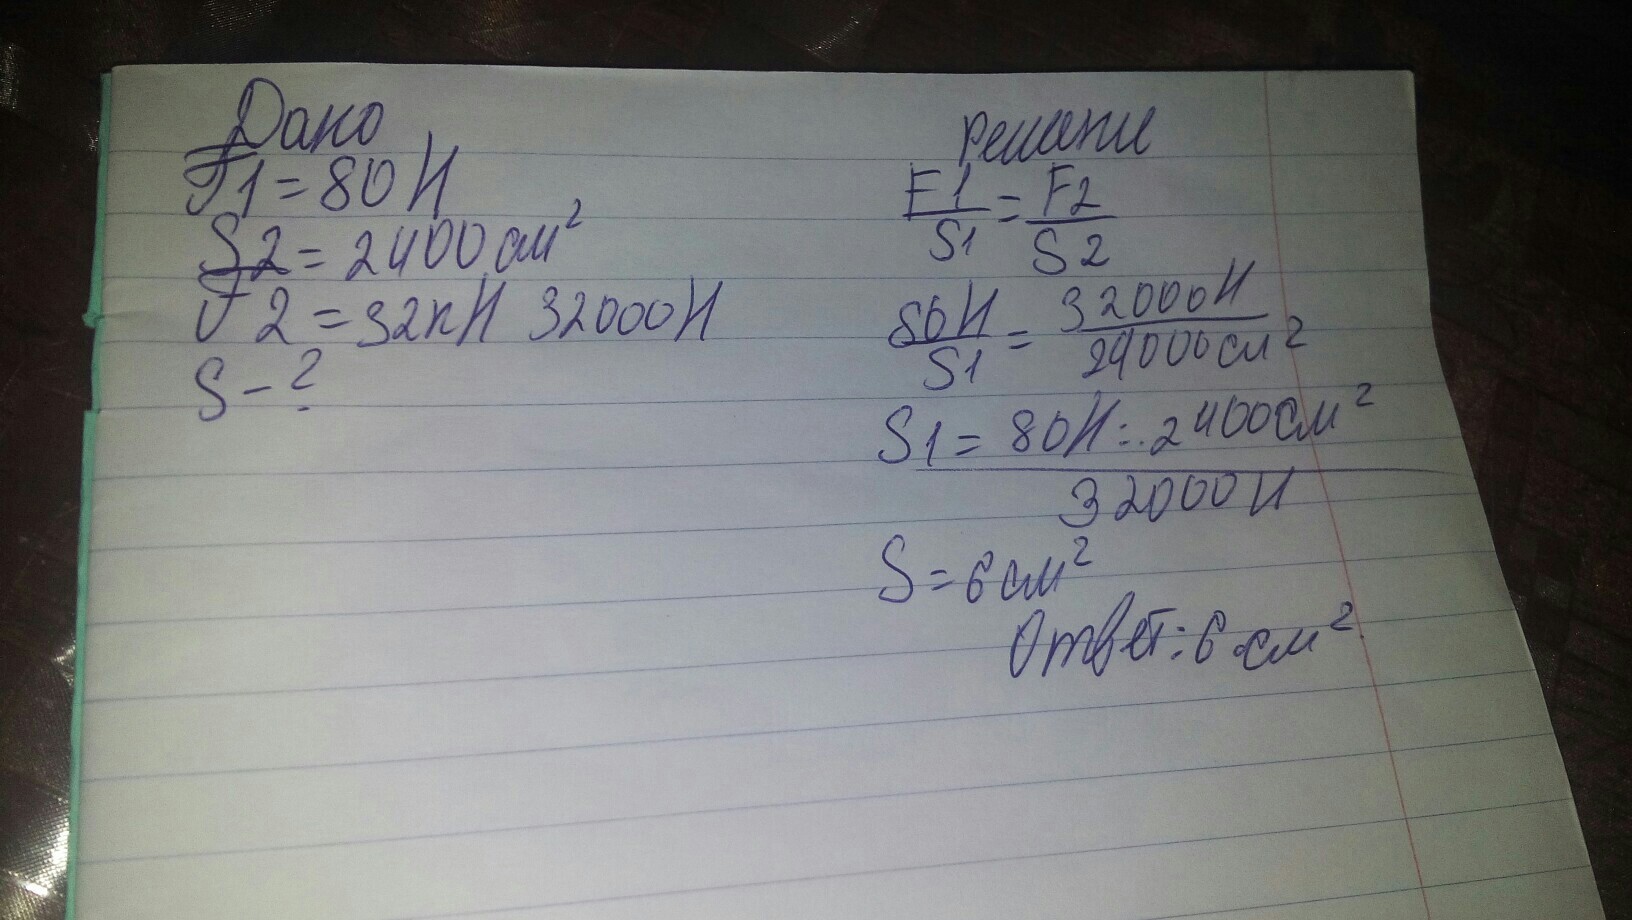 Дано
F1 = 80 Н
S2 = 2400 см²
F2 = 32кН 32000Н
S - ?
Решение
F1/S1 = F2/S2
80Н/S1 = 32000Н/24000см²
S1 = 80Н : . 2400см²
32000Н
S = 6 см²
Ответ: 6 см²